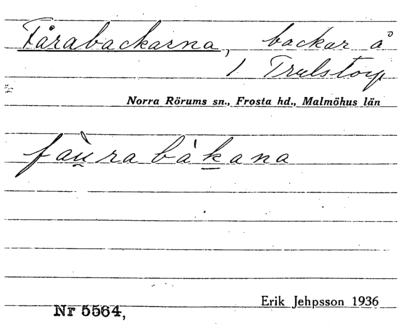 Fårabackarna, backar å
1 Trulstorp
Norra Rörums sn., Frosta hd., Malmöhus län
faùrabàkana
Erik Jehpsson 1936
Nr 5564,